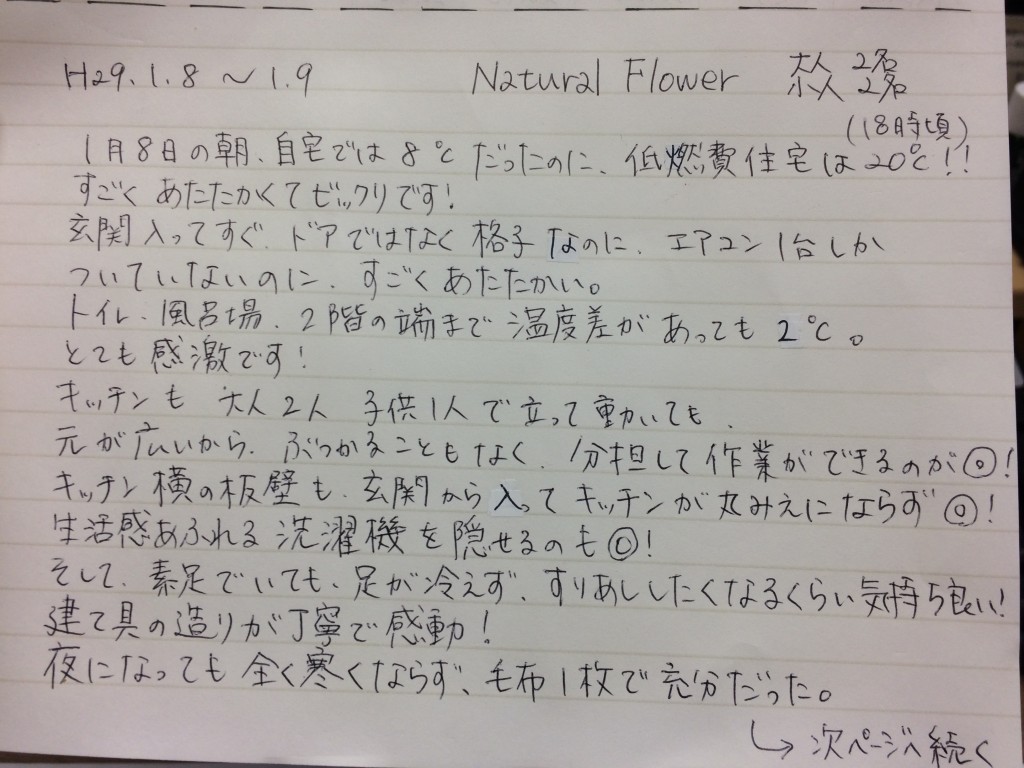 H29.1.8 〜1.9 Natural Flower 大人 2名
小人 2名
(18時頃)
1月8日の朝、自宅では8℃だったのに、低燃費住宅は20℃!!
すごくあたたかくてビックリです!
玄関入ってすぐ、ドアではなく格子なのに、エアコン1台しか
ついていないのに、すごくあたたかい。
トイレ、風呂場、2階の端まで温度差があっても2℃。
とても感激です!
キッチンも 大人2人 子供1人で立って動いても、
元が広いから、ぶつかることもなく、分担して作業ができるのが◎!
キッチン横の板壁も、玄関から入ってキッチンが丸みえにならず◎!
生活感あふれる洗濯機を隠せるのも◎!
そして、素足でいても、足が冷えず、すりあししたくなるくらい気持ち良い!
建て具の造りが丁寧で感動!
夜になっても全く寒くならず、毛布1枚で充分だった。
↳次ページへ続く